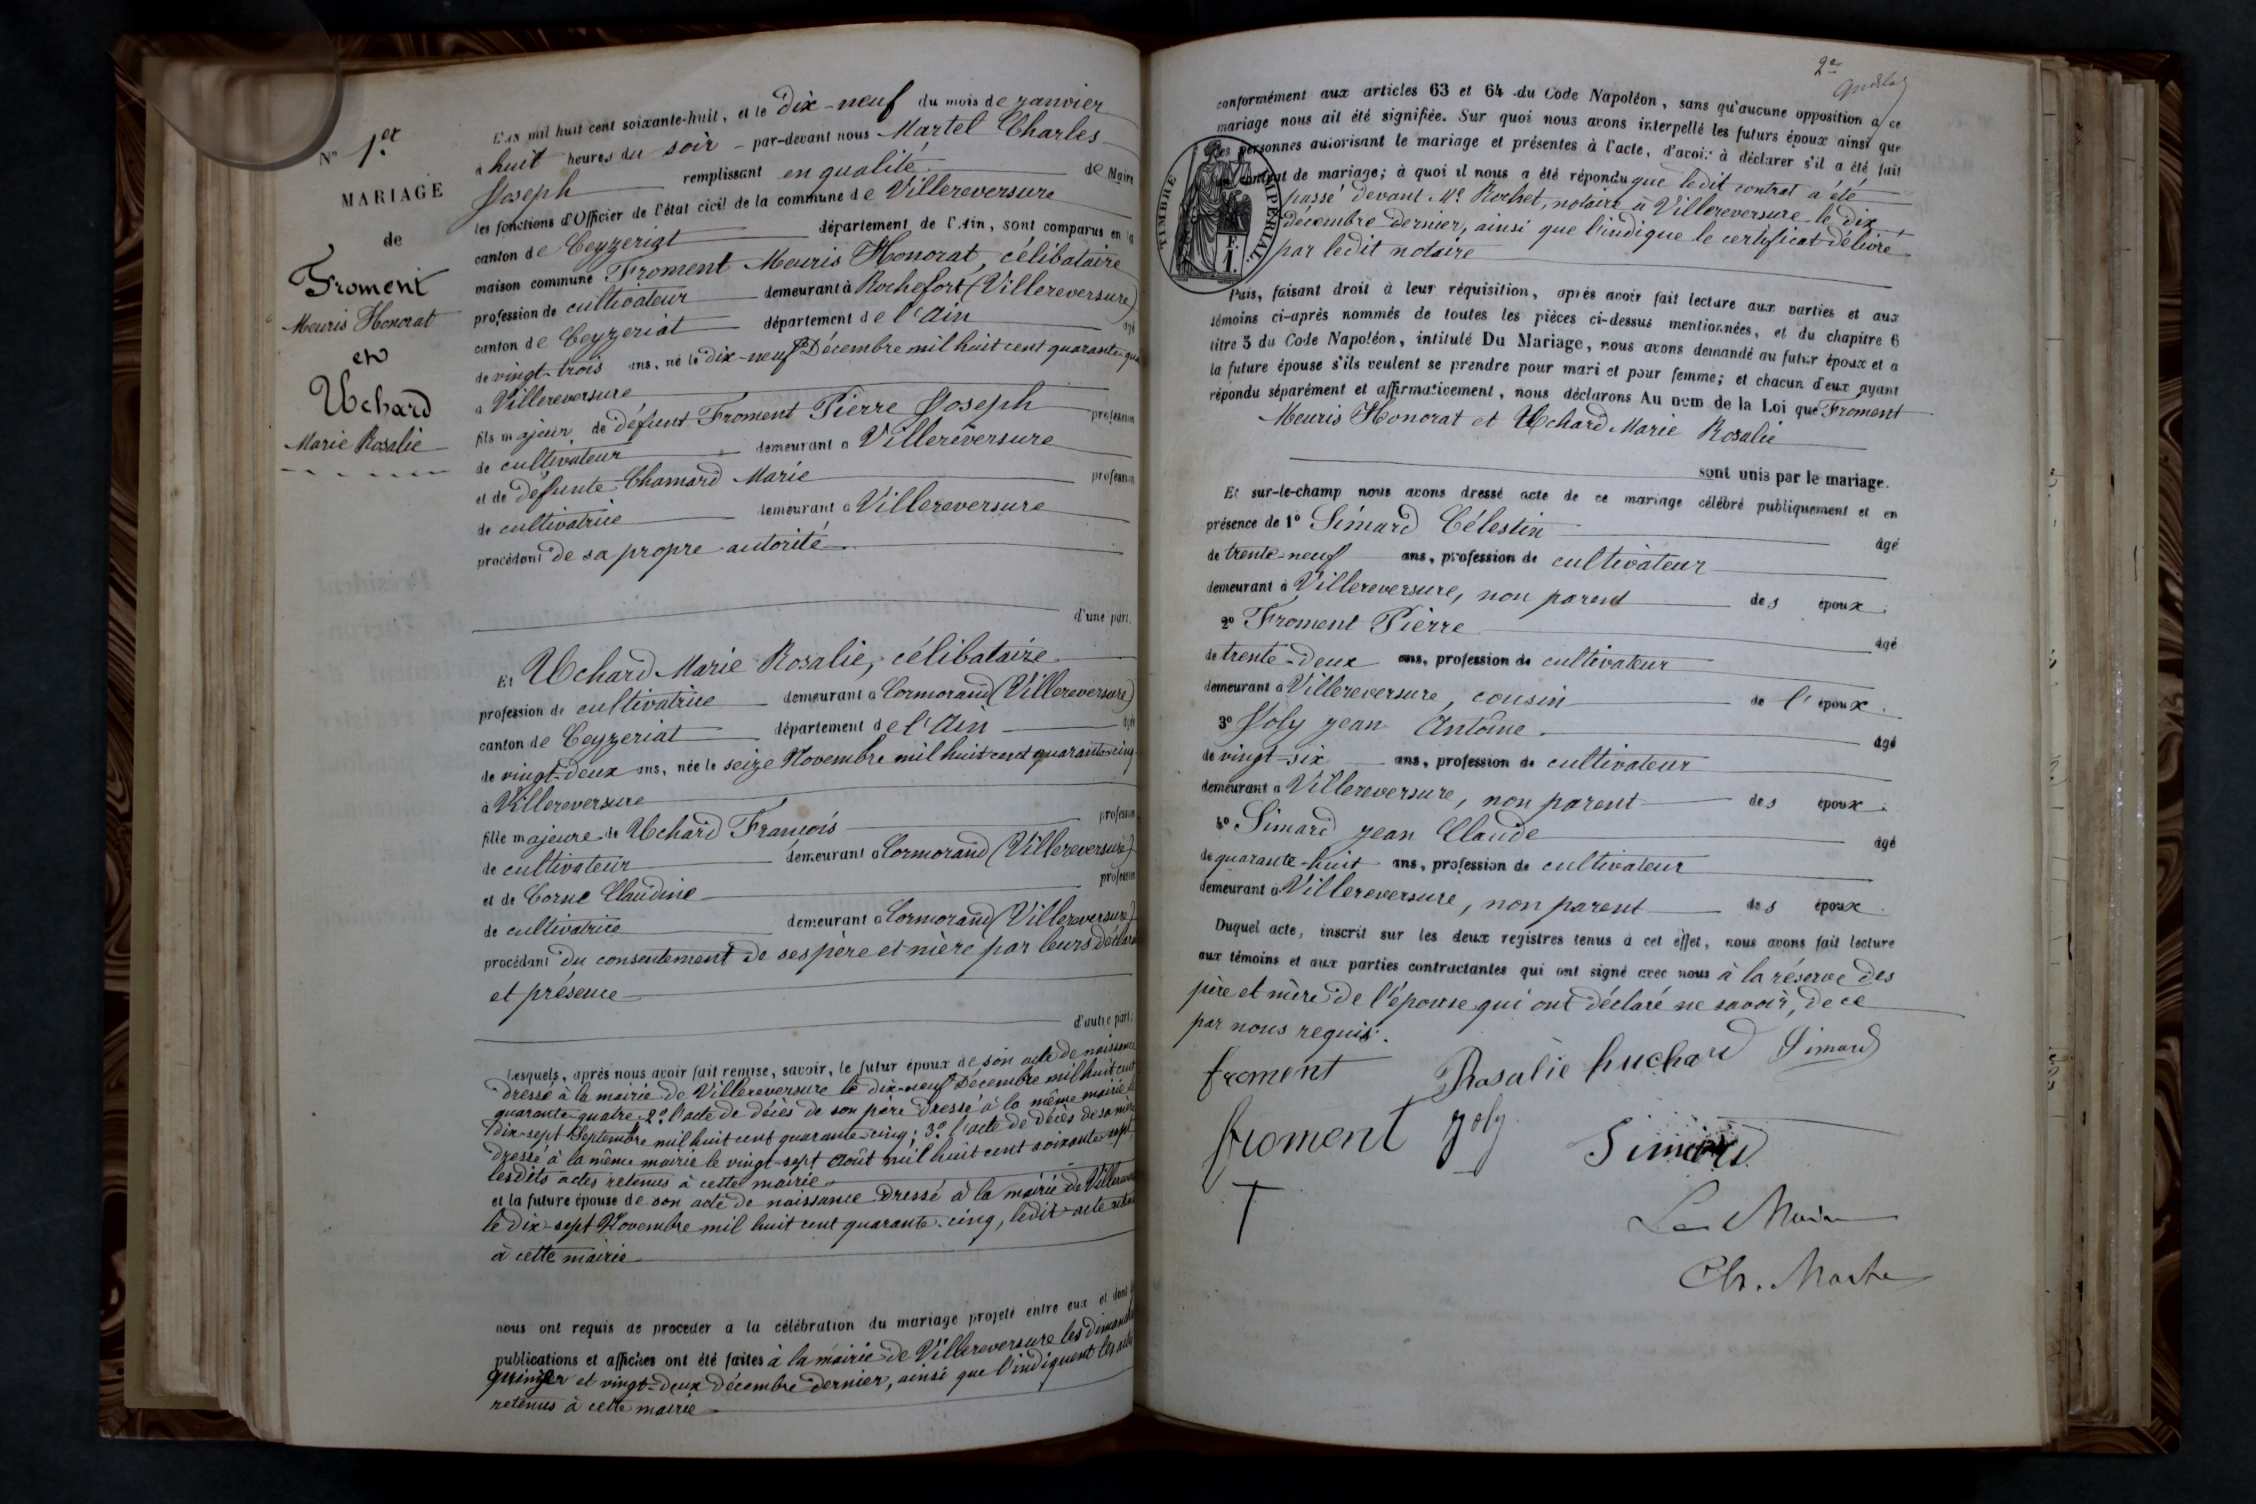 N° 1.er
MARIAGE
de
Froment
Meuris Honorat
et
Uchard
Marie Rosalie
L'an mil huit cent soixante-huit, et le dix-neuf du mois de janvier
à huit heures du soir par-devant nous Martel Charles
Joseph remplissant en qualité de Maire
les fonctions d'Officier de l'état civil de la commune de Villereversure
canton de Ceyzeriat département de l'Ain, sont comparus en la
maison commune Froment Meuris Honorat, célibataire
profession de cultivateur demeurant à Rochefort (Villereversure)
canton de Ceyzeriat département de l'Ain âgé
de vingt-trois ans, né le dix-neuf Décembre mil huit cent quarante-qua
à Villereversure
fils majeur de défunt Froment Pierre Joseph profession
de cultivateur demeurant à Villereversure
et de défunte Chamard Marie profession
de cultivatrice demeurant à Villereversure
procédant de sa propre autorité
d'une part.
Et Uchard Marie Rosalie, célibataire
profession de cultivatrice demeurant à Cormorand (Villereversure)
canton de Ceyzeriat département de l'Ain âgée
de vingt-deux ans, née le seize Novembre mil huit cent quarante-cinq
à Villereversure
fille majeure de Uchard François profession
de cultivateur demeurant à Cormorand (Villereversure)
et de Corne Claudine profession
de cultivatrice demeurant à Cormorand (Villereversure)
procédant du consentement de ses père et mère par leurs déclara
et présence
d'autre part.
Lesquels, après nous avoir fait remise, savoir, le futur époux de son acte de naissance
dressé à la mairie de Villereversure le dix-neuf Décembre mil huit cent
quarante-quatre, 2° l'acte de décès de son père dressé à la même mairie le
dix-sept Septembre mil huit cent quarante-cinq; 3° l'acte de décès de sa mère
dressé à la même mairie le vingt-sept Août mil huit cent soixante-sept
lesdits actes retenus à cette mairie
et la future épouse de son acte de naissance dressé à la mairie de Villerever
le dix-sept Novembre mil huit cent quarante-cinq, ledit acte retenu
à cette mairie
nous ont requis de procéder à la célébration du mariage projeté entre eux et dont les
publications et affiches ont été faites à la mairie de Villereversure les dimanches
quinze et vingt-deux décembre dernier, ainsi que l'indiquent les actes
retenus à cette mairie
2e
conformément aux articles 63 et 64 du Code Napoléon, sans qu'aucune opposition à ce
mariage nous ait été signifiée. Sur quoi nous avons interpellé les futurs époux ainsi que
les personnes autorisant le mariage et présentes à l'acte, d'avoir à déclarer s'il a été fait
un contrat de mariage; à quoi il nous a été répondu que ledit contrat a été
passé devant Me Rochet, notaire à Villereversure le dix
Décembre dernier, ainsi que l'indique le certificat délivré
par ledit notaire
TIMBRE IMPÉRIAL.
F.
1.
Puis, faisant droit à leur réquisition, après avoir fait lecture aux parties et aux
témoins ci-après nommés de toutes les pièces ci-dessus mentionnées, et du chapitre 6
titre 5 du Code Napoléon, intitulé Du Mariage, nous avons demandé au futur époux et a
la future épouse s'ils veulent se prendre pour mari et pour femme; et chacun d'eux ayant
répondu séparément et affirmativement, nous déclarons Au nom de la Loi que Froment
Meuris Honorat et Uchard Marie Rosalie
sont unis par le mariage.
Et sur-le-champ nous avons dressé acte de ce mariage célébré publiquement et en
présence de 1° Simard Célestin âgé
de trente-neuf ans, profession de cultivateur
demeurant à Villereversure, non parent des époux.
2° Froment Pierre âgé
de trente-deux ans, profession de cultivateur
demeurant à Villereversure, cousin de l'époux.
3° Joly jean Antoine âgé
de vingt-six ans, profession de cultivateur
demeurant à Villereversure, non parent des époux.
4° Simard jean Claude âgé
de quarante-huit ans, profession de cultivateur
demeurant à Villereversure, non parent des époux.
Duquel acte, inscrit sur les deux registres tenus à cet effet, nous avons fait lecture
aux témoins et aux parties contractantes qui ont signé avec nous à la réserve des
père et mère de l'épouse qui ont déclaré ne savoir, de ce
par nous requis.
froment Rosalie huchard Simard
froment joly Simard
Le Maire
Ch. Martel